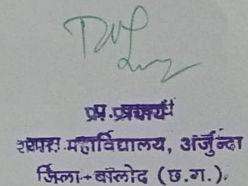 प्र. प्राचार्य
शास. महाविद्यालय, अर्जुन्दा
जिला-बालोद (छ.ग.).